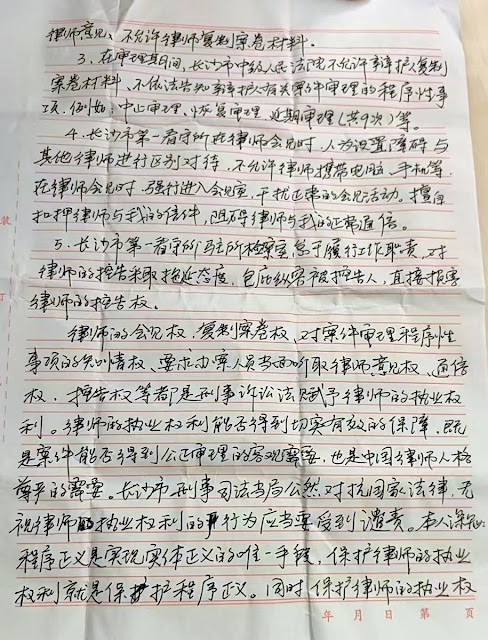 律师意见、不允许律师复制案卷材料。
3、在审理期间,长沙市中级人民法院不允许辩护人复制
案卷材料、不依法告知辩护人有关案件审理的程序性事
项,例如:中止审理、恢复审理、延期审理(共9次)等。
4、长沙市第一看守所在律师会见时,人为设置障碍与
其他律师进行区别对待,不允许律师携带电脑、手机等,
在律师会见时,强行进入会见室,干扰正常的会见活动。擅自
扣押律师与我的信件,阻碍律师与我的正常通信。
5、长沙市第一看守所驻所检察室怠于履行工作职责,对
律师的控告采取拖延态度,包庇纵容被控告人,直接损害
律师的控告权。
律师的会见权、复制案卷权、对案件审理程序性
事项的知情权、要求办案人员当面听取律师意见权、通信
权、控告权等都是刑事诉讼法赋予律师的执业权
利。律师的执业权利能否得到切实有效的保障,既
是案件能否得到公正审理的客观需要,也是中国律师人格
尊严的需要。长沙市刑事司法当局公然对抗国家法律,无
视律师执业权利的行为应当要受到谴责。本人深知:
程序正义是实现实体正义的唯一手段,保护律师的执业
权利就是保护程序正义。同时,保护律师的执业权
年 月 日 第 页
装
订